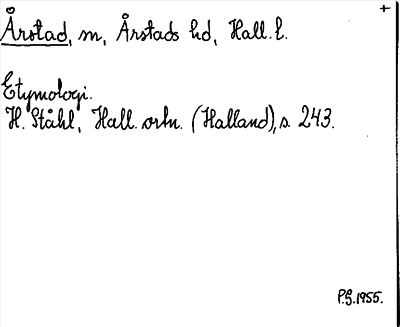 +
Årstad, m, Årstads hd, Hall. l.
Etymologi.
H. Ståhl, Hall. ortn. (Halland), s. 243.
P.G. 1955.